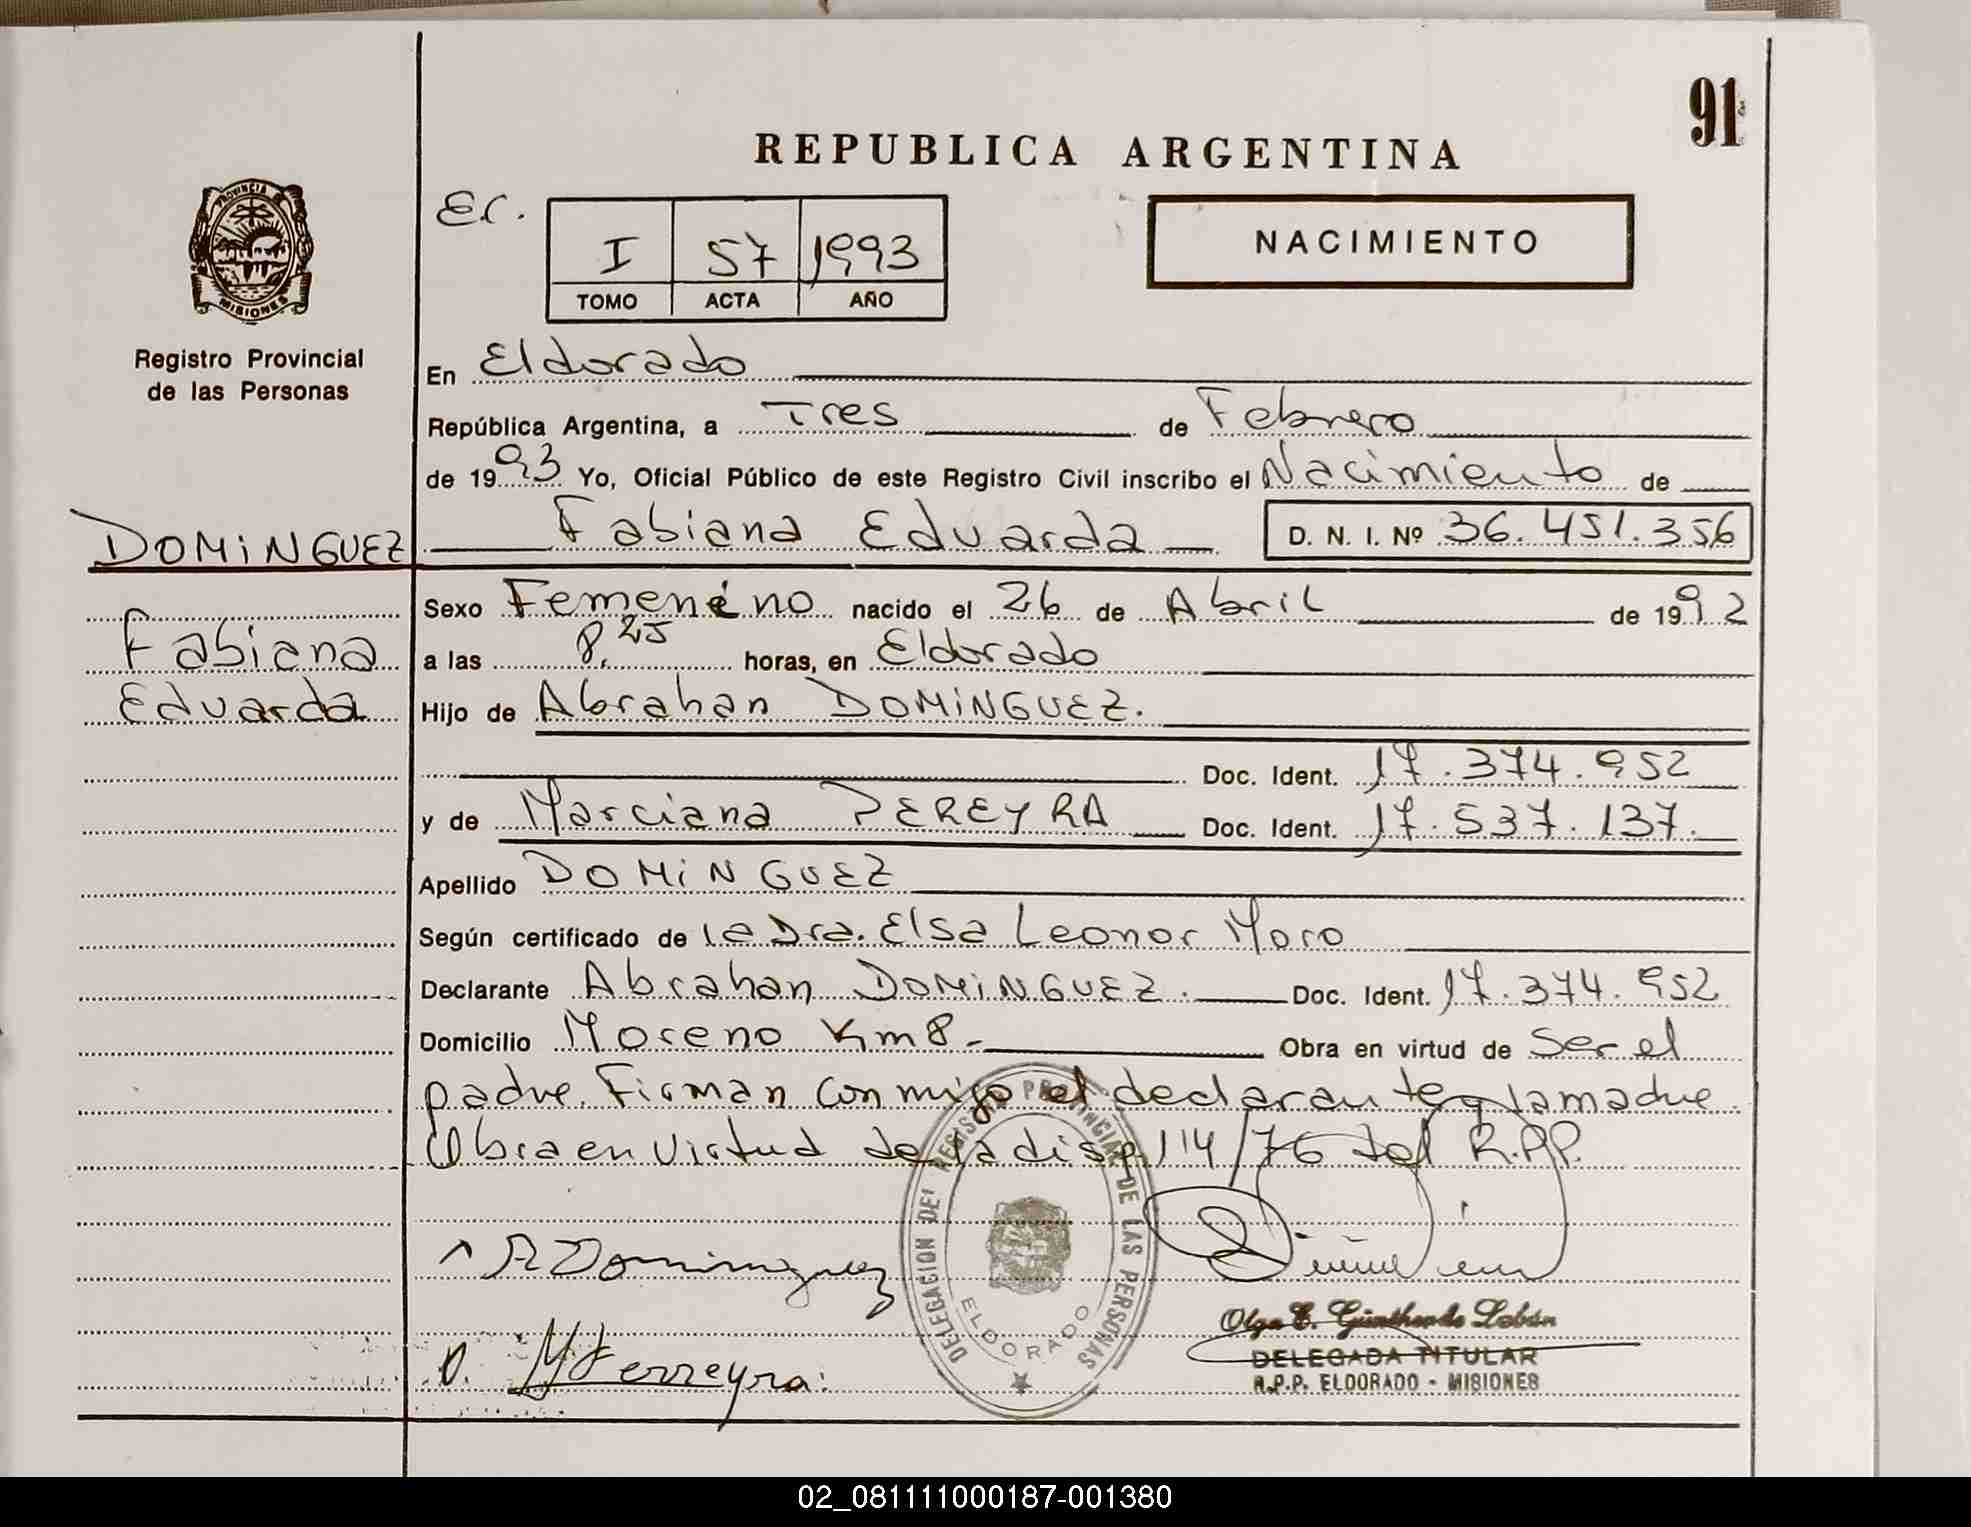 91
REPUBLICA ARGENTINA
PROVINCIA DE
MISIONES
Registro Provincial
de las Personas
Er.
I 57 1993
TOMO ACTA AÑO
NACIMIENTO
En Eldorado
República Argentina, a Tres de Febrero
de 1993 Yo, Oficial Público de este Registro Civil inscribo el Nacimiento de
DOMINGUEZ Fabiana Eduarda D. N. I. Nº 36.451.356
Sexo Femenino nacido el 26 de Abril de 1992
Fabiana a las 8,25 horas, en Eldorado
Eduarda Hijo de Abrahan DOMINGUEZ.
Doc. Ident. 17.374.952
y de Marciana PEREYRA Doc. Ident. 17.537.137.
Apellido DOMINGUEZ
Según certificado de la Dra. Elsa Leonor Moro
Declarante Abrahan DOMINGUEZ. Doc. Ident. 17.374.952
Domicilio Moreno Km 8.- Obra en virtud de Ser el
padre. Firman conmigo el declarante y la madre.
Obra en virtud de la disp. 114/76 del R.P.P.
DELEGACION DEL REGISTRO PROVINCIAL DE LAS PERSONAS
ELDORADO
A Dominguez
M Ferreyra
Olga E. Günther de Labán
DELEGADA TITULAR
R.P.P. ELDORADO - MISIONES
02_081111000187-001380